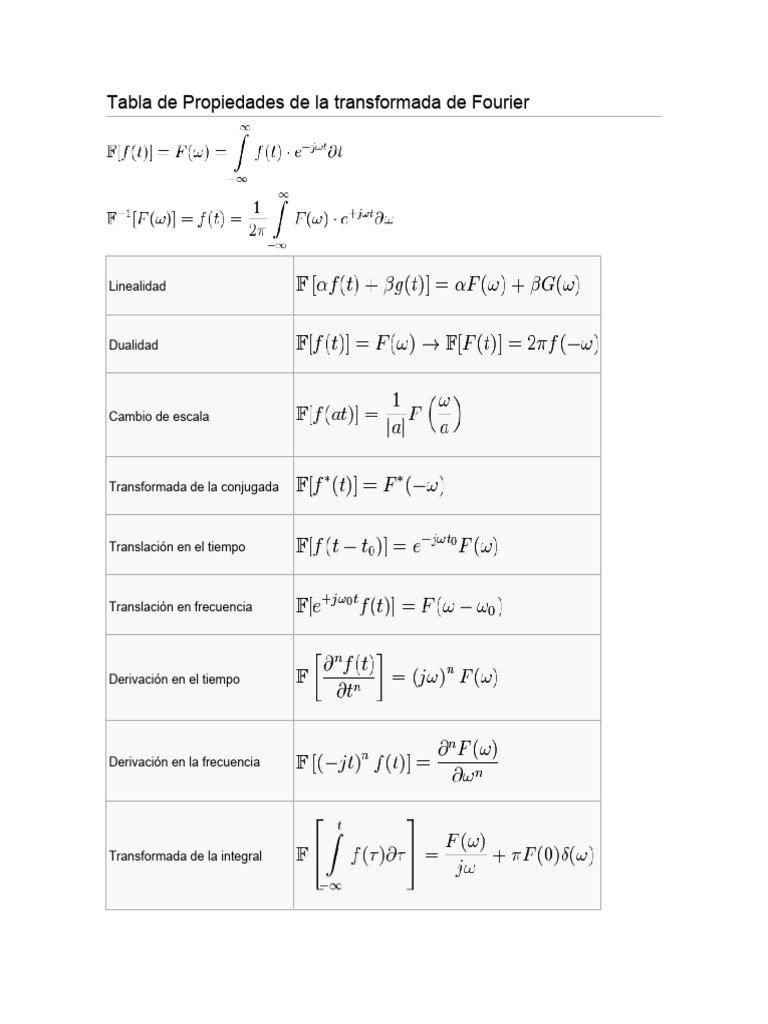 Tabla de Propiedades de la transformada de Fourier
𝔽[f(t)] = F(ω) = ∫_{−∞}^{∞} f(t) · e^{−jωt}∂t
𝔽^{−1}[F(ω)] = f(t) = \frac{1}{2π} ∫_{−∞}^{∞} F(ω) · e^{+jωt}∂ω
Linealidad 𝔽[αf(t) + βg(t)] = αF(ω) + βG(ω)
Dualidad 𝔽[f(t)] = F(ω) → 𝔽[F(t)] = 2πf(−ω)
Cambio de escala 𝔽[f(at)] = \frac{1}{|a|} F(\frac{ω}{a})
Transformada de la conjugada 𝔽[f*(t)] = F*(−ω)
Translación en el tiempo 𝔽[f(t − t₀)] = e^{−jωt₀}F(ω)
Translación en frecuencia 𝔽[e^{+jω₀t}f(t)] = F(ω − ω₀)
Derivación en el tiempo 𝔽[\frac{∂ⁿf(t)}{∂tⁿ}] = (jω)ⁿ F(ω)
Derivación en la frecuencia 𝔽[(−jt)ⁿ f(t)] = \frac{∂ⁿF(ω)}{∂ωⁿ}
Transformada de la integral 𝔽[∫_{−∞}^{t} f(τ)∂τ] = \frac{F(ω)}{jω} + πF(0)δ(ω)